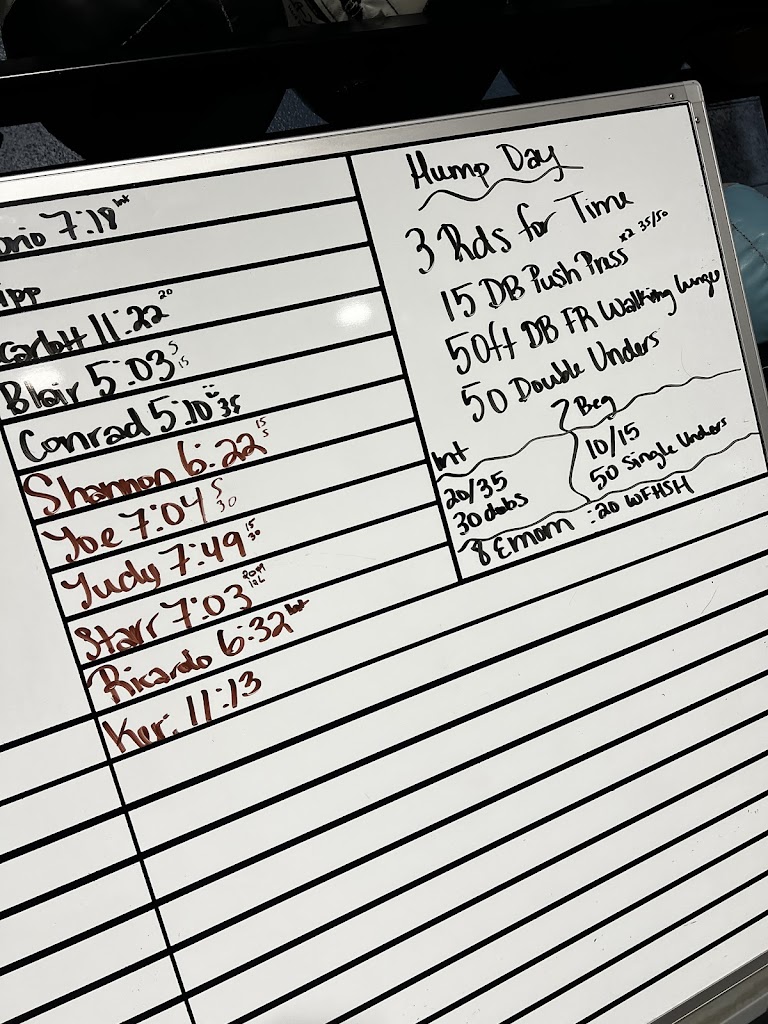 7:18 Int
ipp
11:22 20
Blair 5:03 5 15
Conrad 5:10 35
Shannon 6:22 15 5
Joe 7:04 5 30
Judy 7:49 15 30
Starr 7:03
Ricardo 6:32 Int
Ker. 11:13
Hump Day
3 Rds for Time
15 DB Push Press x2 35/50
50ft DB FR Walking lunge
50 Double Unders
Int
20/35
30 dubs
Beg
10/15
50 Single Unders
8 Emom :20 WFHSH